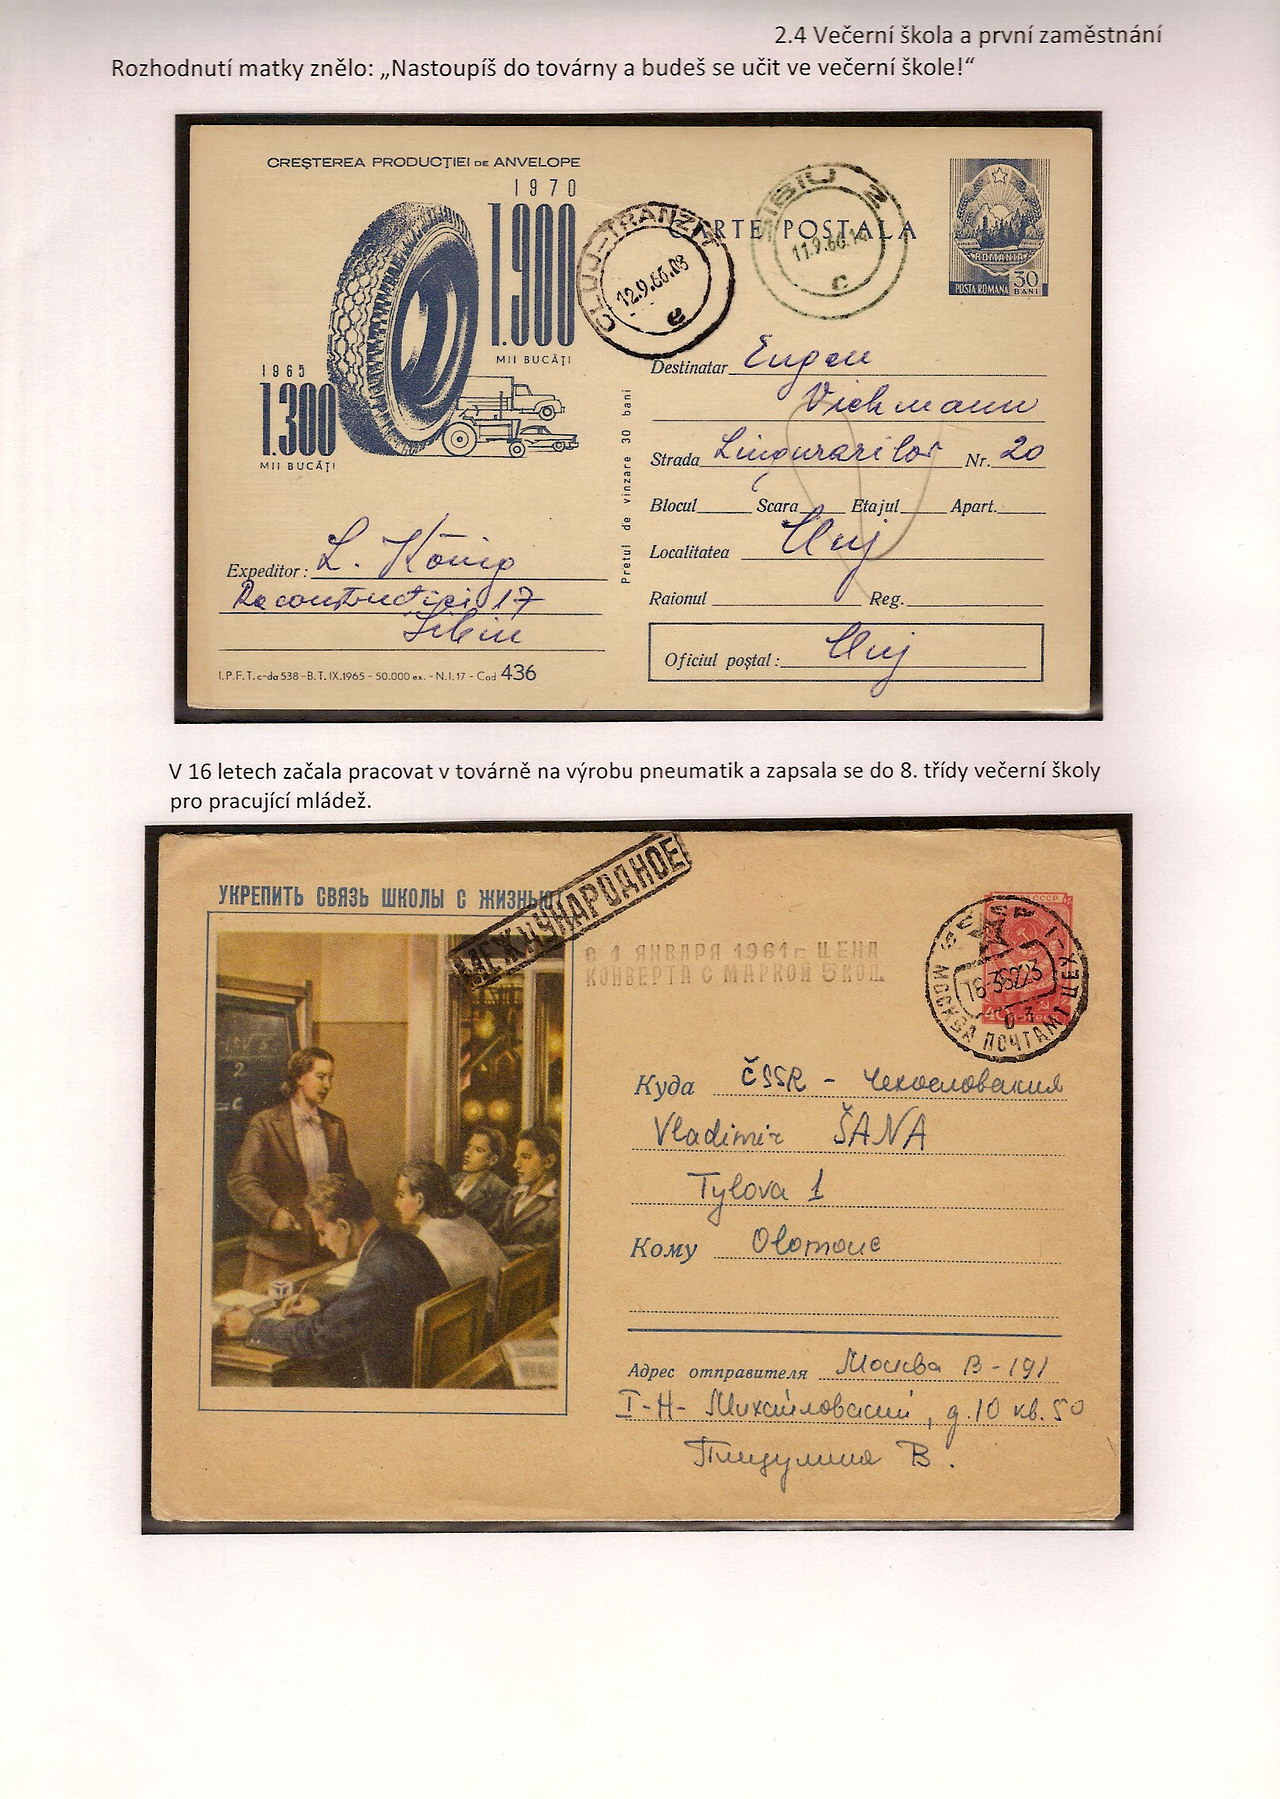 2.4 Večerní škola a první zaměstnání
Rozhodnutí matky znělo: „Nastoupíš do továrny a budeš se učit ve večerní škole!“
CREȘTEREA PRODUCȚIEI DE ANVELOPE
1970
1.900
MII BUCĂȚI
1965
1.300
MII BUCĂȚI
CLUJ-TRANZIT
12.9.66.08
e
SIBIU 2
11.9.66.14
c
CARTE POSTALA
ROMANIA
POSTA ROMANA 30 BANI
Destinatar Eugen
Vichmann
Strada Lingurarilor Nr. 20
Blocul Scara Etajul Apart.
Localitatea Cluj
Raionul Reg.
Oficiul poștal: Cluj
Pretul de vinzare 30 bani
Expeditor: L. König
Reconstrucției 17
Sibiu
I.P.F.T. c-da 538 - B.T. IX.1965 - 50.000 ex. - N.I. 17 - Cod 436
V 16 letech začala pracovat v továrně na výrobu pneumatik a zapsala se do 8. třídy večerní školy
pro pracující mládež.
УКРЕПИТЬ СВЯЗЬ ШКОЛЫ С ЖИЗНЬЮ
МЕЖДУНАРОДНОЕ
С 1 ЯНВАРЯ 1961 г. ЦЕНА
КОНВЕРТА С МАРКОЙ 5 КОП.
МОСКВА ПОЧТАМТ ЦЕХ-1
Куда ČSSR - Чехословакия
Vladimir ŠANA
Tylova 1
Кому Olomouc
Адрес отправителя Москва В-191
I-Н- Михайловский, д.10 кв.50
В.